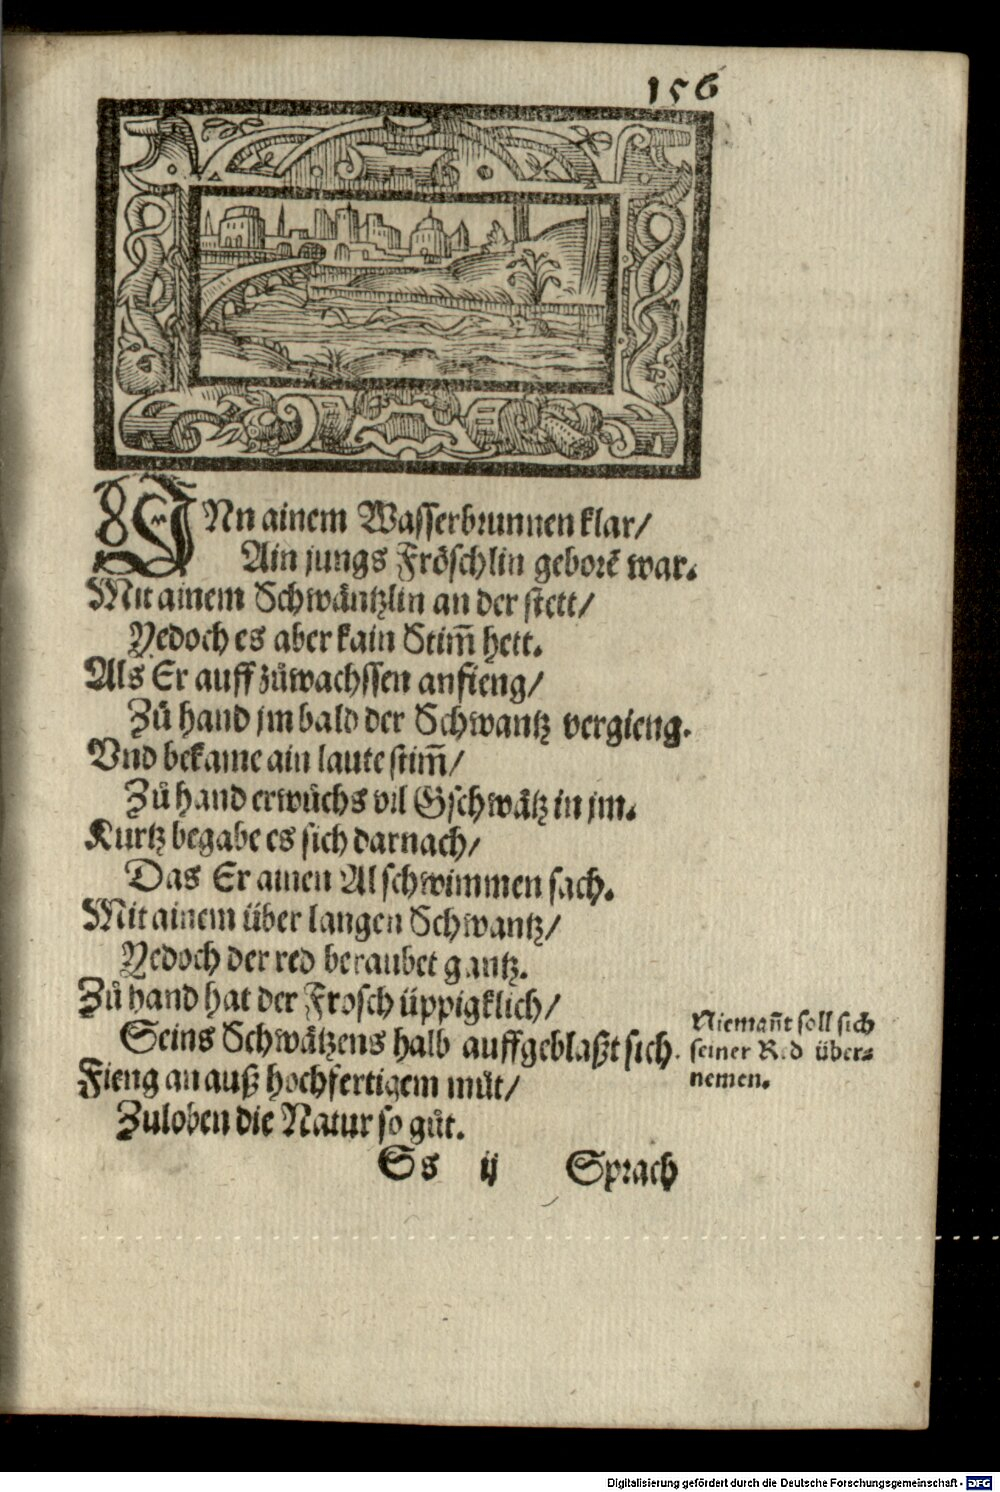 156
INn ainem Wasserbrunnen klar/
Ain jungs Fröschlin geborē war.
Mit ainem Schwäntzlin an der stett/
Yedoch es aber kain Stim̅ hett.
Als Er auff zůwachssen anfieng/
Zů hand jm bald der Schwantz vergieng.
Vnd bekame ain laute stim̅/
Zů hand erwůchs vil Gschwätz in jm.
Kurtz begabe es sich darnach/
Das Er ainen Al schwimmen sach.
Mit ainem über langen Schwantz/
Yedoch der red beraubet gantz.
Zů hand hat der Frosch üppigklich/
Seins Schwätzens halb auffgeblaßt sich.
Fieng an auß hochfertigem můt/
Zuloben die Natur so gůt.
Niemañt soll sich
seiner Red über-
nemen.
Ss ij Sprach
Digitalisierung gefördert durch die Deutsche Forschungsgemeinschaft - DFG